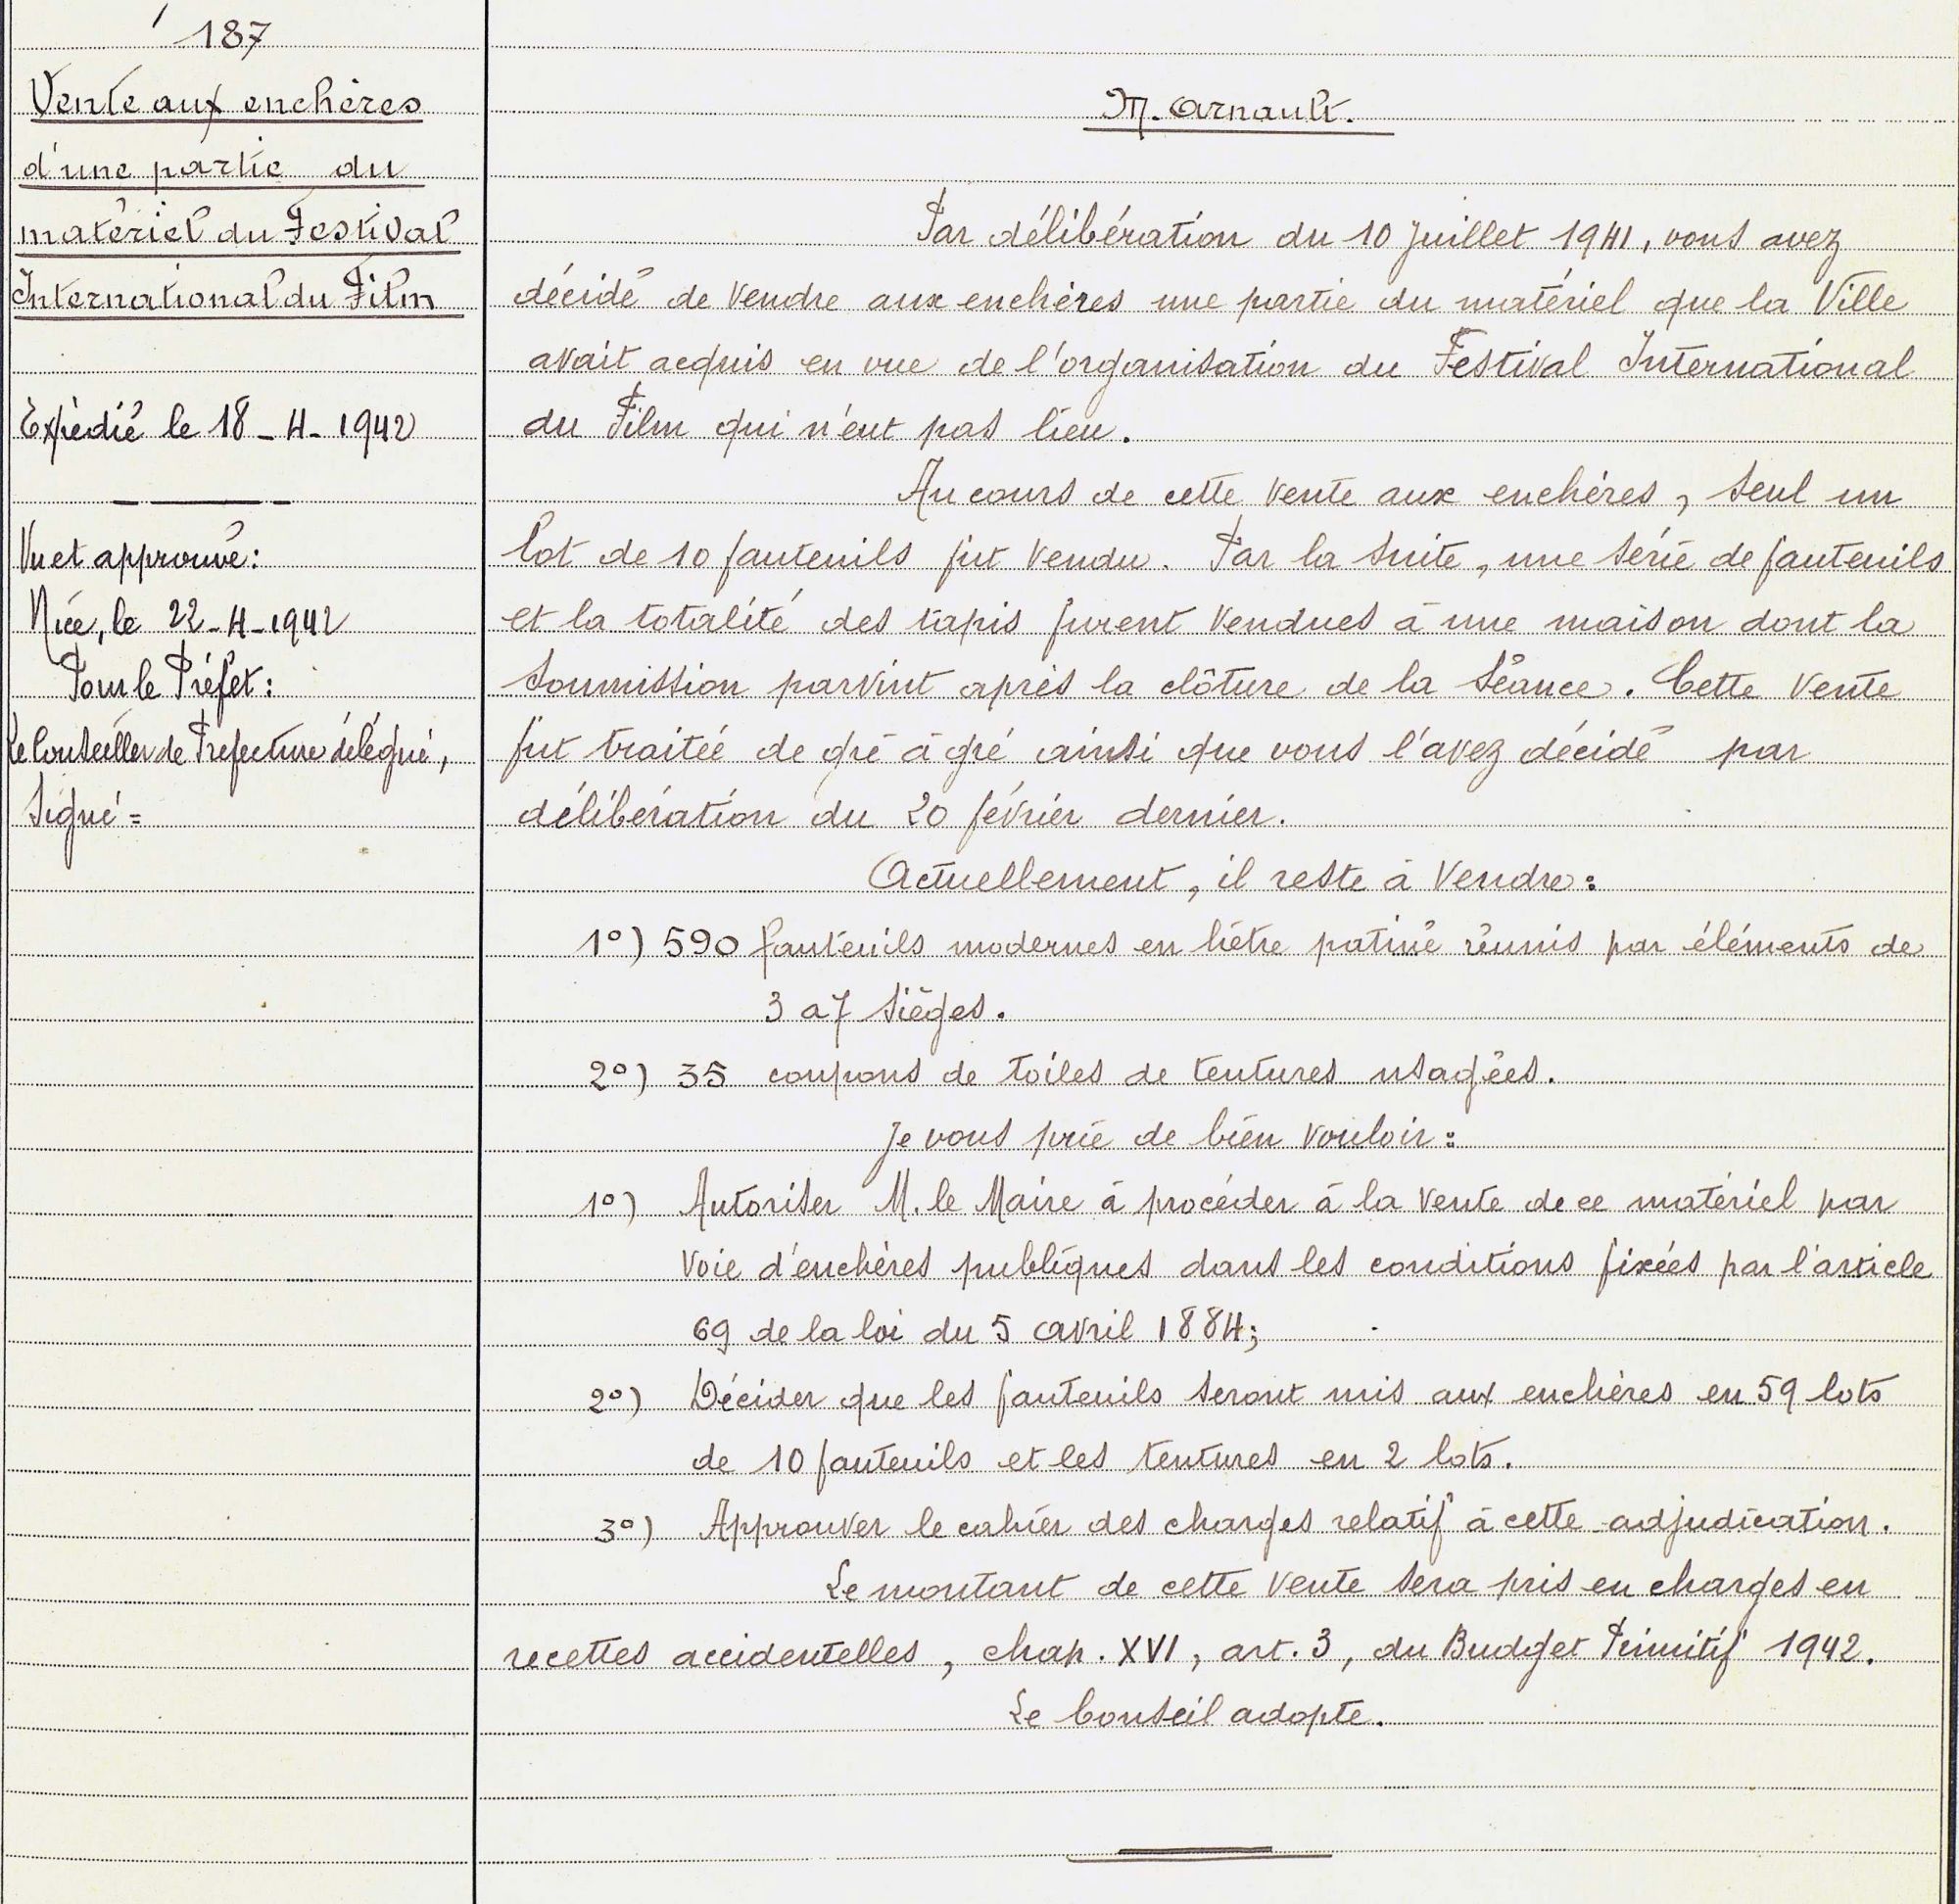 187
Vente aux enchères
d'une partie du
matériel du Festival
International du Film
Expédié le 18-4-1942
Vu et approuvé:
Nice, le 22-4-1942
Pour le Préfet:
Le Conseiller de Préfecture délégué,
Signé=
M. Arnault.
Par délibération du 10 Juillet 1941, vous avez
décidé de vendre aux enchères une partie du matériel que la Ville
avait acquis en vue de l'organisation du Festival International
du Film qui n'eut pas lieu.
Au cours de cette vente aux enchères, seul un
lot de 10 fauteuils fut vendu. Par la suite, une série de fauteuils
et la totalité des tapis furent vendues à une maison dont la
soumission parvint après la clôture de la séance. Cette vente
fut traitée de gré à gré ainsi que vous l'avez décidé par
délibération du 20 février dernier.
Actuellement, il reste à vendre:
1°) 590 fauteuils modernes en hêtre patiné réunis par éléments de
3 a 7 sièges.
2°) 35 coupons de toiles de tentures usagées.
Je vous prie de bien vouloir:
1°) Autoriser M. le Maire à procéder à la vente de ce matériel par
voie d'enchères publiques dans les conditions fixées par l'article
69 de la loi du 5 avril 1884;
2°) Décider que les fauteuils seront mis aux enchères en 59 lots
de 10 fauteuils et les tentures en 2 lots.
3°) Approuver le cahier des charges relatif à cette adjudication.
Le montant de cette vente sera pris en charges en
recettes accidentelles, chap. XVI, art. 3, du Budget Primitif 1942.
Le Conseil adopte.